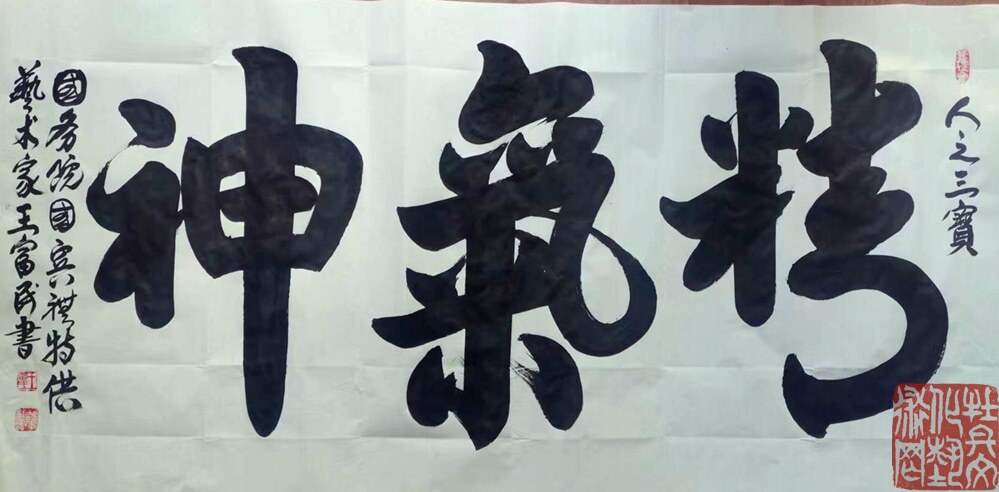 人之三寶
精氣神
國务院國宾禮特供
藝术家王富民書